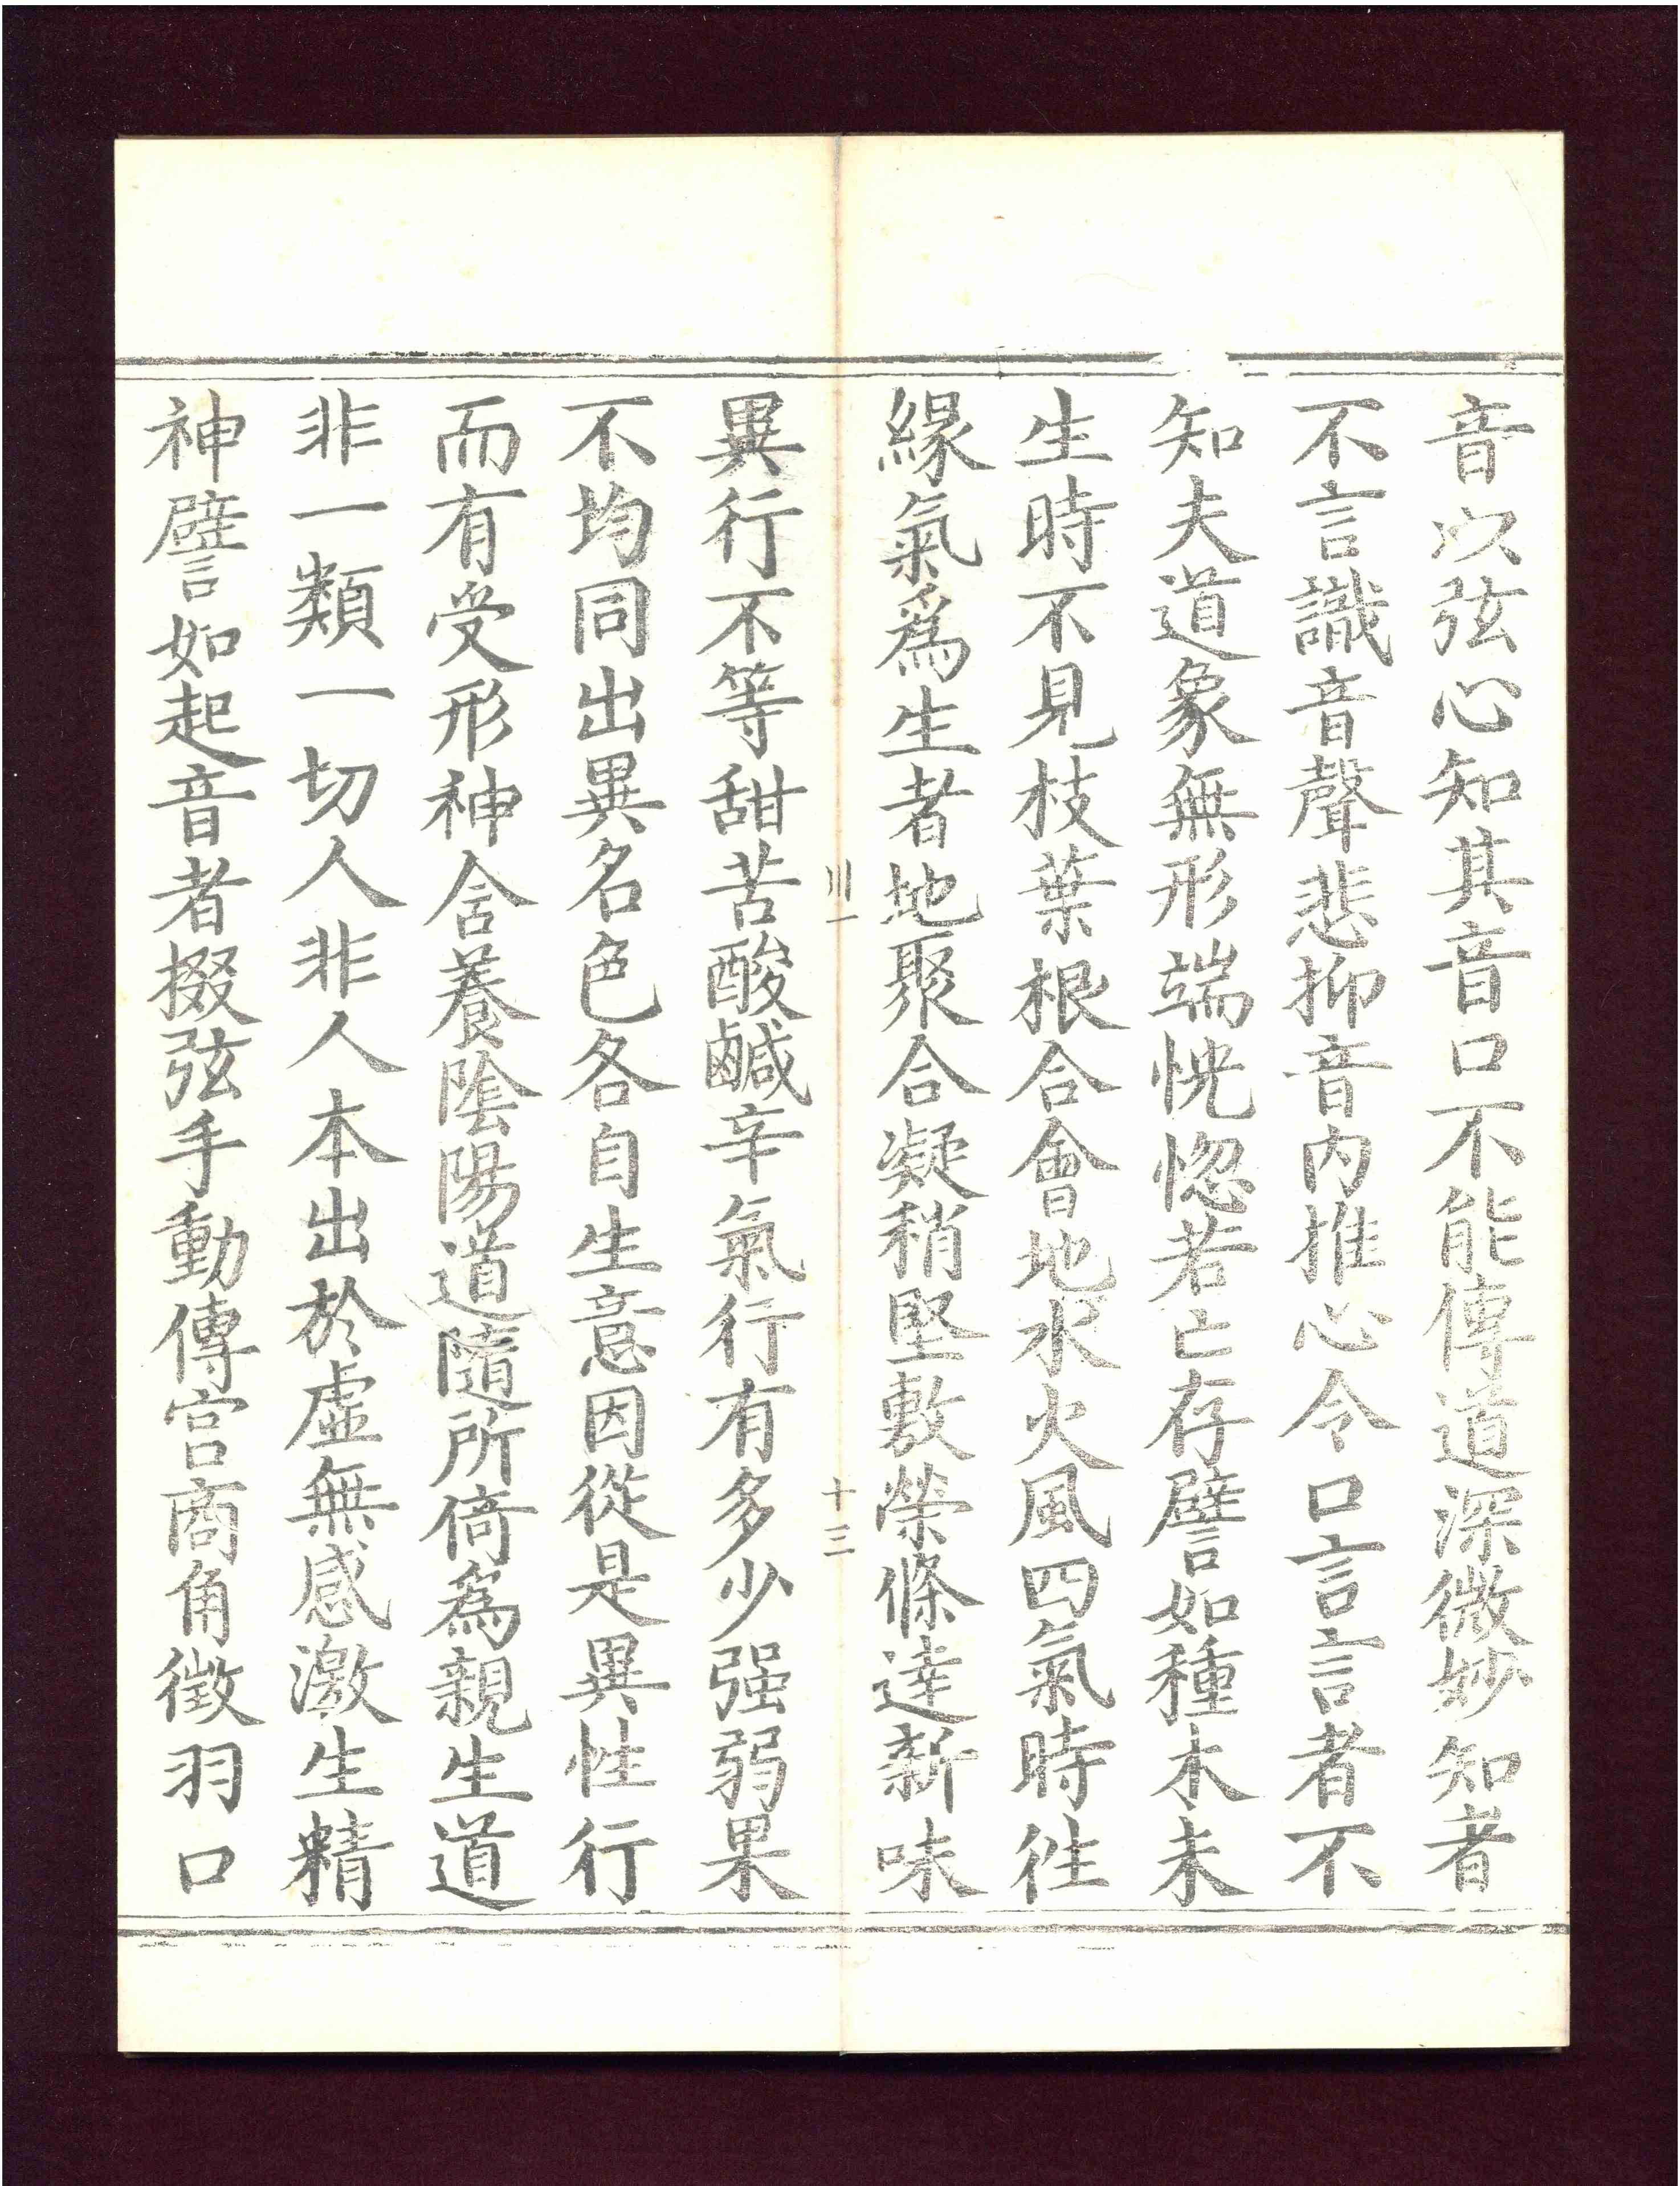 音以弦心知其音口不能傳道深微妙知者
不言識音聲悲抑音內推心令口言言者不
知夫道象無形端恍惚若亡存譬如種木未
生時不見枝葉根合會地水火風四氣時徃
緣氣爲生者地聚合凝稍堅敷榮條達新味
川一
十三
異行不等甜苦酸鹹辛氣行有多少强弱果
不均同出異名色各自生意因從是異性行
而有受形神含養陰陽道隨所倚爲親生道
非一類一切人非人本出於虛無感激生精
神譬如起音者掇弦手動傳宮商角徵羽口